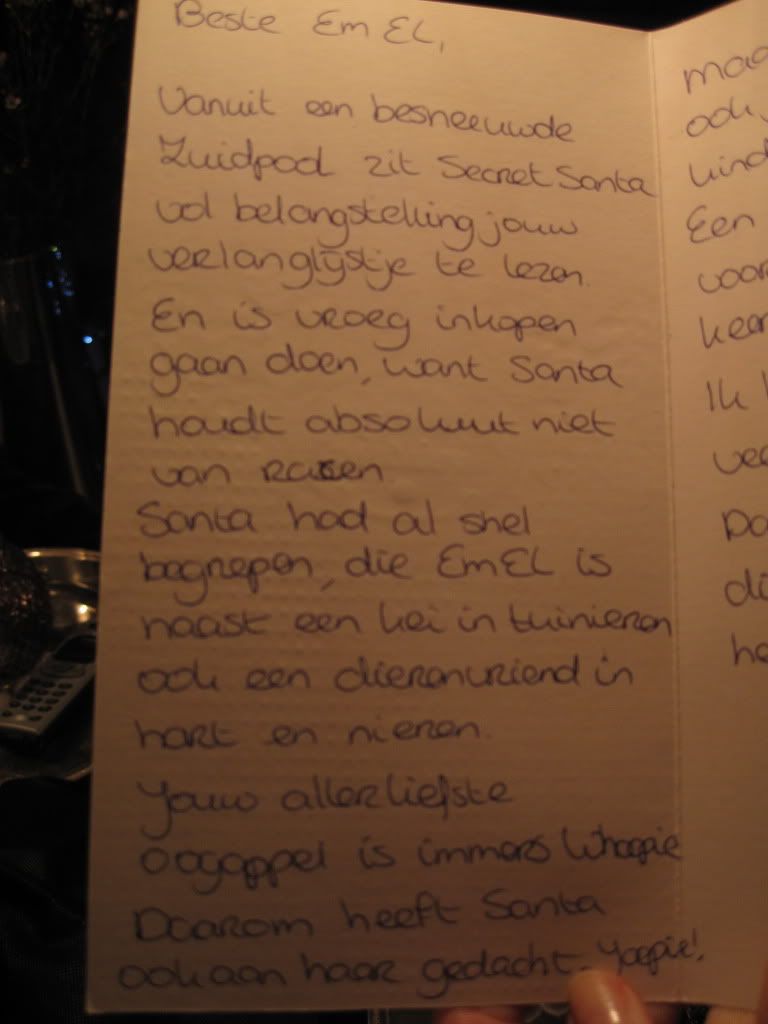 Beste Em EL,
Vanuit een besneeuwde
Zuidpool zit Secret Santa
vol belangstelling jouw
verlanglijstje te lezen.
En is vroeg inkopen
gaan doen, want Santa
houdt absoluut niet
van racen.
Santa had al snel
begrepen, die EmEL is
naast een kei in tuinieren
ook een dierenvriend in
hart en nieren.
Jouw allerliefste
oogappel is immers Whoopie
Daarom heeft Santa
ook aan haar gedacht. Yoepie!
ook
Een
Ik